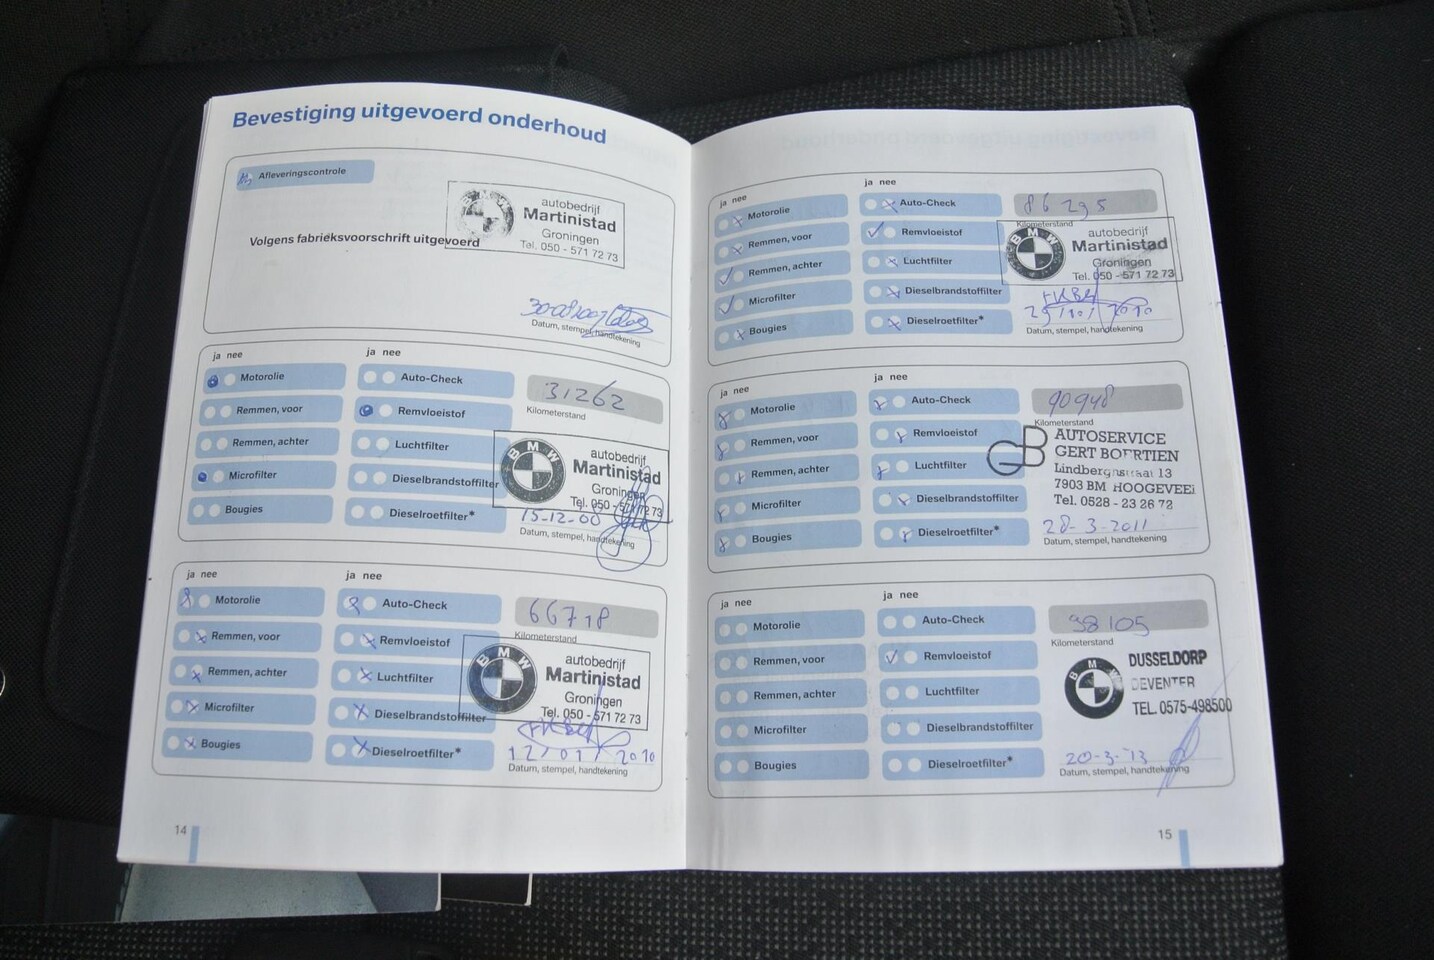 Bevestiging uitgevoerd onderhoud
Afleveringscontrole
Volgens fabrieksvoorschrift uitgevoerd
BMW
autobedrijf
Martinistad
Groningen
Tel. 050 - 571 72 73
Datum, stempel, handtekening
ja nee
ja nee
Motorolie
Remmen, voor
Remmen, achter
Microfilter
Bougies
Auto-Check
Remvloeistof
Luchtfilter
Dieselbrandstoffilter
Dieselroetfilter*
31262
Kilometerstand
BMW
autobedrijf
Martinistad
Groningen
Tel. 050 - 571 72 73
15-12-08
Datum, stempel, handtekening
ja nee
ja nee
Motorolie
Remmen, voor
Remmen, achter
Microfilter
Bougies
Auto-Check
Remvloeistof
Luchtfilter
Dieselbrandstoffilter
Dieselroetfilter*
66718
Kilometerstand
BMW
autobedrijf
Martinistad
Groningen
Tel. 050 - 571 72 73
12/01/2010
Datum, stempel, handtekening
14
ja nee
ja nee
Motorolie
Remmen, voor
Remmen, achter
Microfilter
Bougies
Auto-Check
Remvloeistof
Luchtfilter
Dieselbrandstoffilter
Dieselroetfilter*
86295
Kilometerstand
BMW
autobedrijf
Martinistad
Groningen
Tel. 050 - 571 72 73
29/10/2010
Datum, stempel, handtekening
ja nee
ja nee
Motorolie
Remmen, voor
Remmen, achter
Microfilter
Bougies
Auto-Check
Remvloeistof
Luchtfilter
Dieselbrandstoffilter
Dieselroetfilter*
90948
Kilometerstand
GB AUTOSERVICE
GERT BOERTIEN
Lindbergstraat 13
7903 BM HOOGEVEEN
Tel. 0528 - 23 26 72
28-3-2011
Datum, stempel, handtekening
ja nee
ja nee
Motorolie
Remmen, voor
Remmen, achter
Microfilter
Bougies
Auto-Check
Remvloeistof
Luchtfilter
Dieselbrandstoffilter
Dieselroetfilter*
98105
Kilometerstand
BMW
DUSSELDORP
DEVENTER
TEL. 0575-498500
20-3-'13
Datum, stempel, handtekening
15